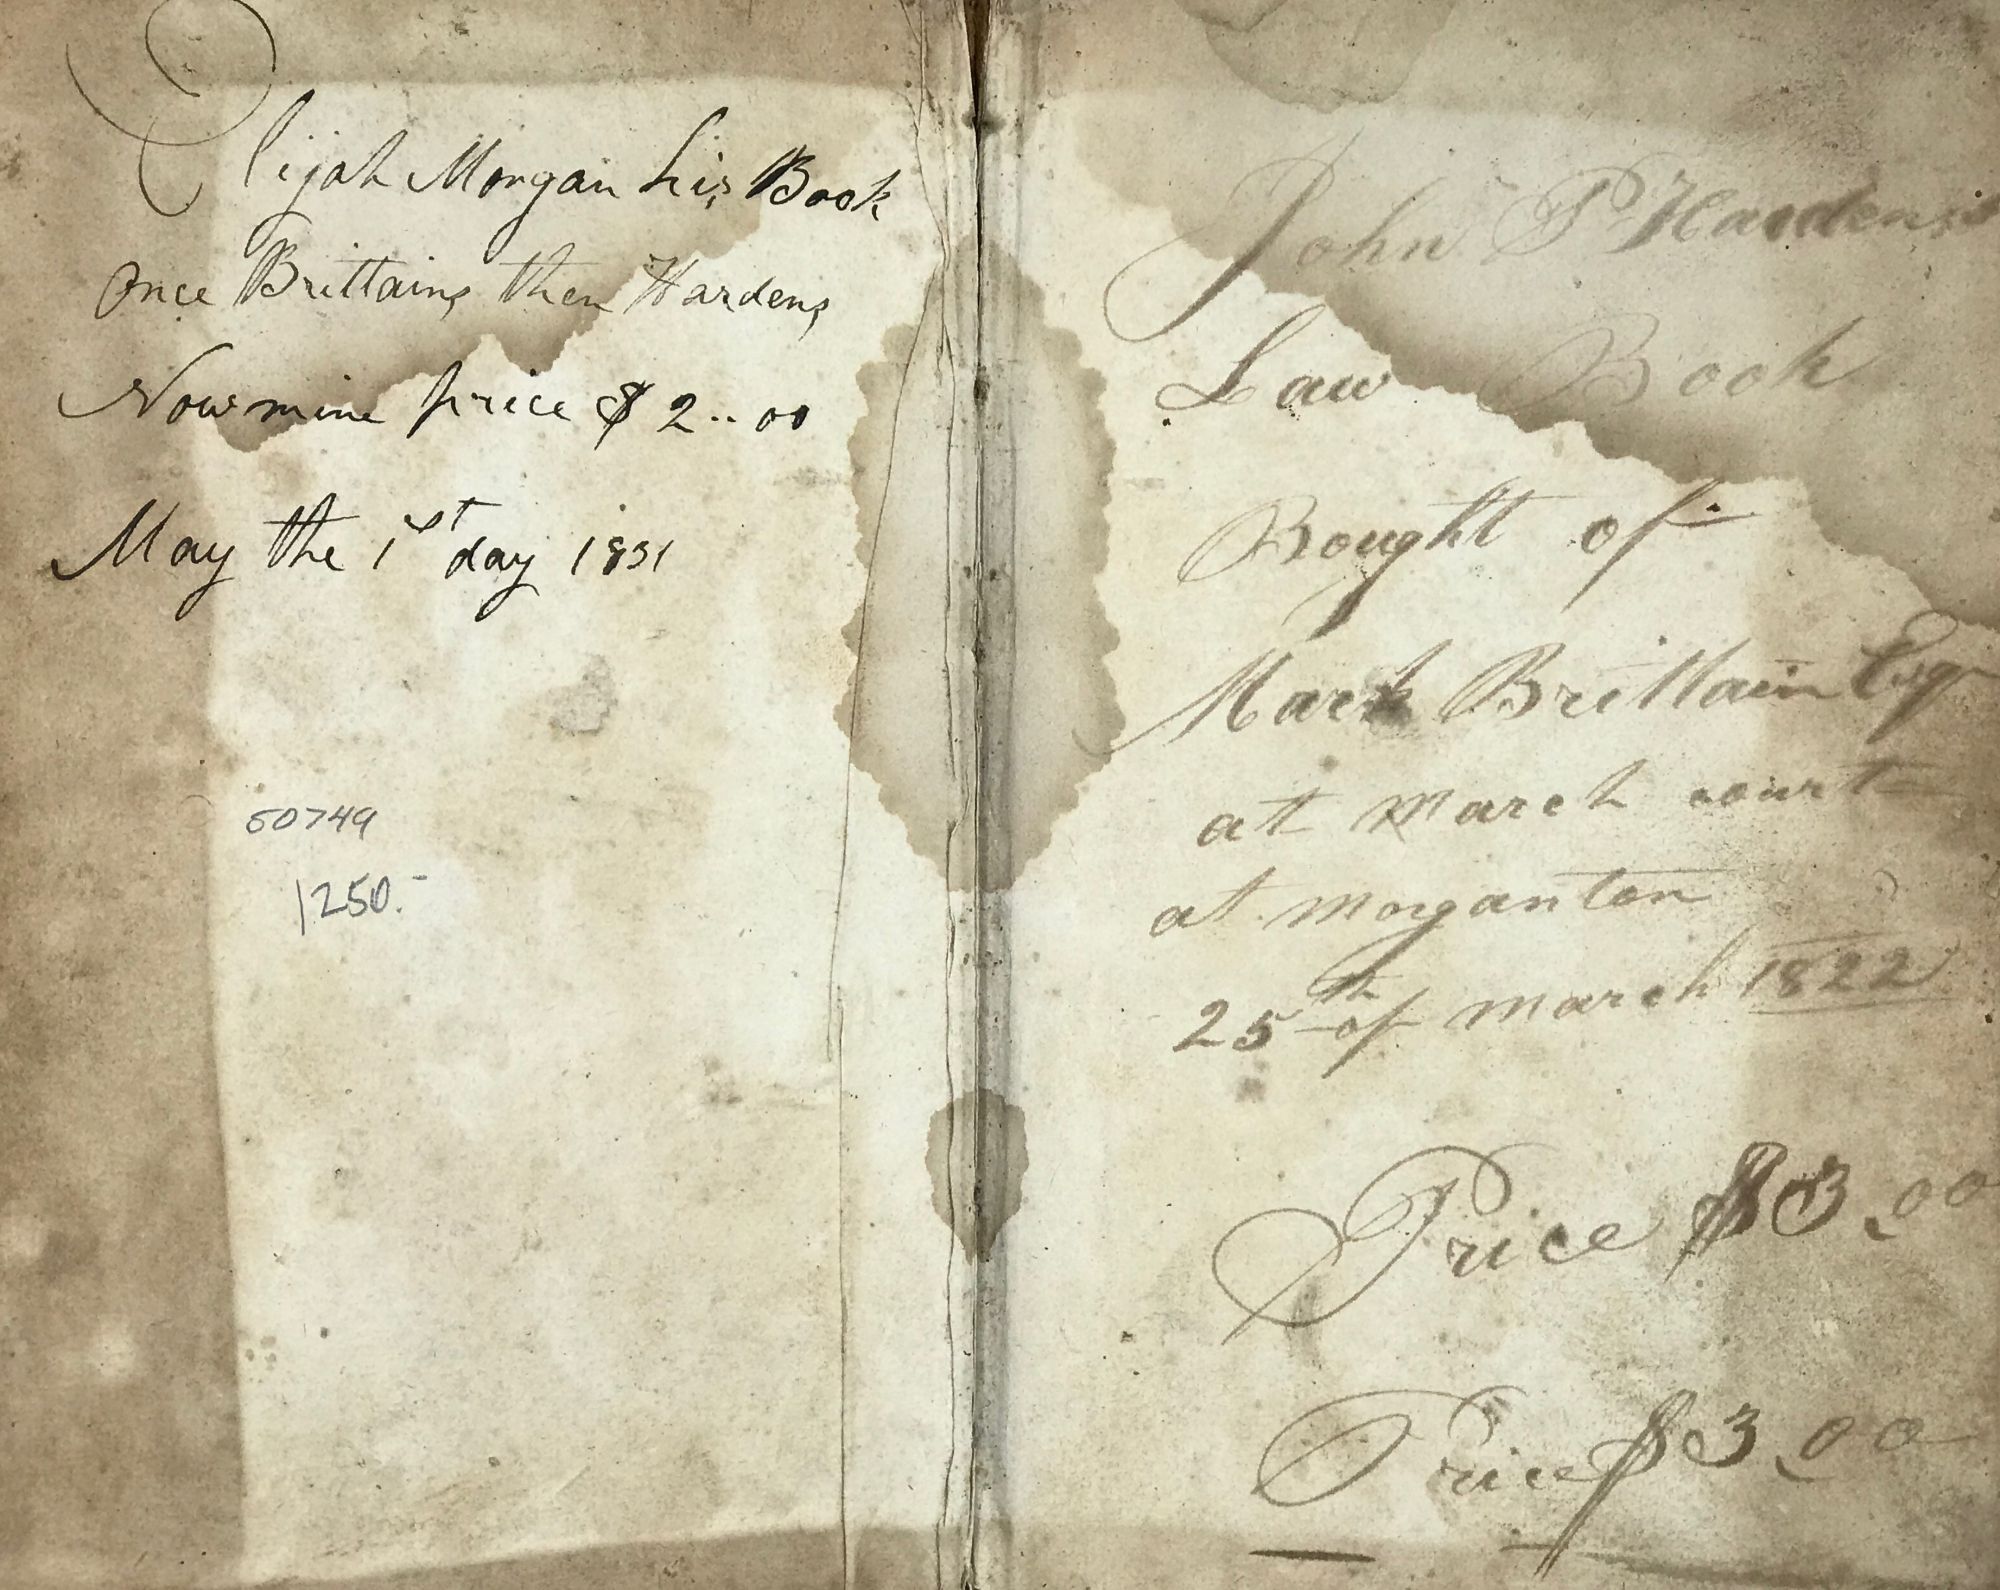 Elijah Morgan his Book
Once Brittains then Hardens
Now mine price $2..00
May the 1st day 1831
50749
1250.-
John P Hardens
Law Book
Bought of
Mark Brittain Esqr
at March court
at morganton
25th of march 1822
Price $3.00
Price $3.00